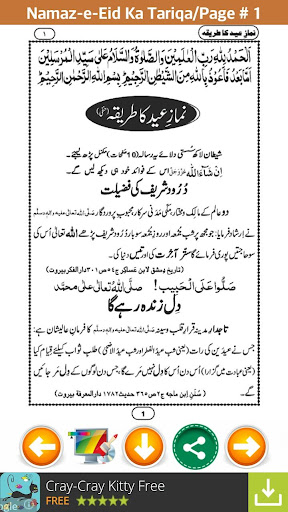 Namaz-e-Eid Ka Tariqa/Page # 1
١ نماز عید کا طریقہ
اَلْحَمْدُ لِلّٰهِ رَبِّ الْعٰلَمِیْنَ وَالصَّلٰوةُ وَالسَّلَامُ عَلٰی سَیِّدِ الْمُرْسَلِیْنَ
اَمَّا بَعْدُ فَاَعُوْذُ بِاللّٰهِ مِنَ الشَّیْطٰنِ الرَّجِیْمِ بِسْمِ اللّٰهِ الرَّحْمٰنِ الرَّحِیْمِ
نمازِ عید کا طریقہ (حنفی)
شیطان لاکھ سُستی دلائے یہ رسالہ (10 صفحات) مکمّل پڑھ لیجئے۔
اِنْ شَآءَ اللّٰه عَزَّوَجَلَّ اس کے فوائد خود ہی دیکھ لیں گے۔
دُرُود شریف کی فضیلت
دو عالم کے مالِک و مختار، مکّی مَدَنی سرکار، محبوبِ پروردگار صلی اللہ تعالیٰ علیہ والہ وسلم
نے ارشاد فرمایا: جو مجھ پر شبِ جمعہ اور روزِ جمعہ سو بار دُرُود شریف پڑھے اللہ تعالیٰ اُس کی
سو حاجتیں پوری فرمائے گا ستّر آخِرت کی اور تیس دنیا کی۔
(تاریخ دمشق لابن عساکر ج٥٤ ص٣٠١ دار الفکر بیروت)
صَلُّوْا عَلَی الْحَبِیْب! صلَّی اللّٰهُ تعالٰی علٰی محمَّد
دِل زندہ رہے گا
تاجدارِ مدینہ قرارِ قلب و سینہ صلی اللہ تعالیٰ علیہ والہ وسلم کا فرمانِ عالیشان ہے:
جس نے عیدَین کی رات (یعنی شبِ عیدُ الفِطر اور شبِ عیدُ الاَضحٰی) طلبِ ثواب کیلئے قِیام کیا
(یعنی عبادت میں گزارا) اُس دن اُس کا دل نہیں مرے گا، جس دن لوگوں کے دل مر جائیں
گے۔ (سُنَن اِبن ماجہ ج٢ ص٣٦٥ حدیث ١٧٨٢ دار المعرفة بیروت)
1
Cray-Cray Kitty Free
FREE